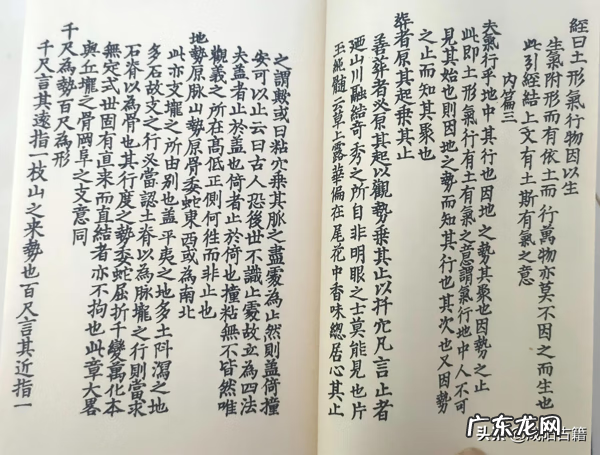 經曰土形氣行物因以生
生氣附形而有依土而行萬物亦莫不因之而生也
此引經結上文有土斯有氣之意
內篇三
夫氣行乎地中其行也因地之勢其聚也因勢之止
此即土形氣行有土有氣之意謂氣行地中人不可
見其始也則因地之勢而知其行也其次也又因勢
之止而知其聚也
葬者原其起乘其止
善葬者必原其起以觀勢乘其止以扦穴凡言止者
廼山川融結奇秀之所自非明眼之士莫能見也片
玉純髓云草上露華偏在尾花中香味總居心其止
之謂歟或曰粘穴乘其脈之盡處為止然則蓋倚撞
安可以止云曰古人恐後世不識止處故立為四法
大蓋者止於蓋也倚者止於倚也撞粘無不皆然唯
觀義之所在高低正側何徃而非止也
地勢原脈山勢原骨委蛇東西或為南北
此亦文壠之所由別也蓋平夷之地多土阡瀉之地
多石故文之行必當認土脊以為脈壠之行則當求
石脊以為骨也其行度之勢委蛇屈折千變萬化本
無定式世固有直來而直結者亦不拘也此章大畧
與丘壠之骨岡阜之文意同
千尺為勢百尺為形
千尺言其遠指一枝山之來勢也百尺言其近指一
广东龙网
头条